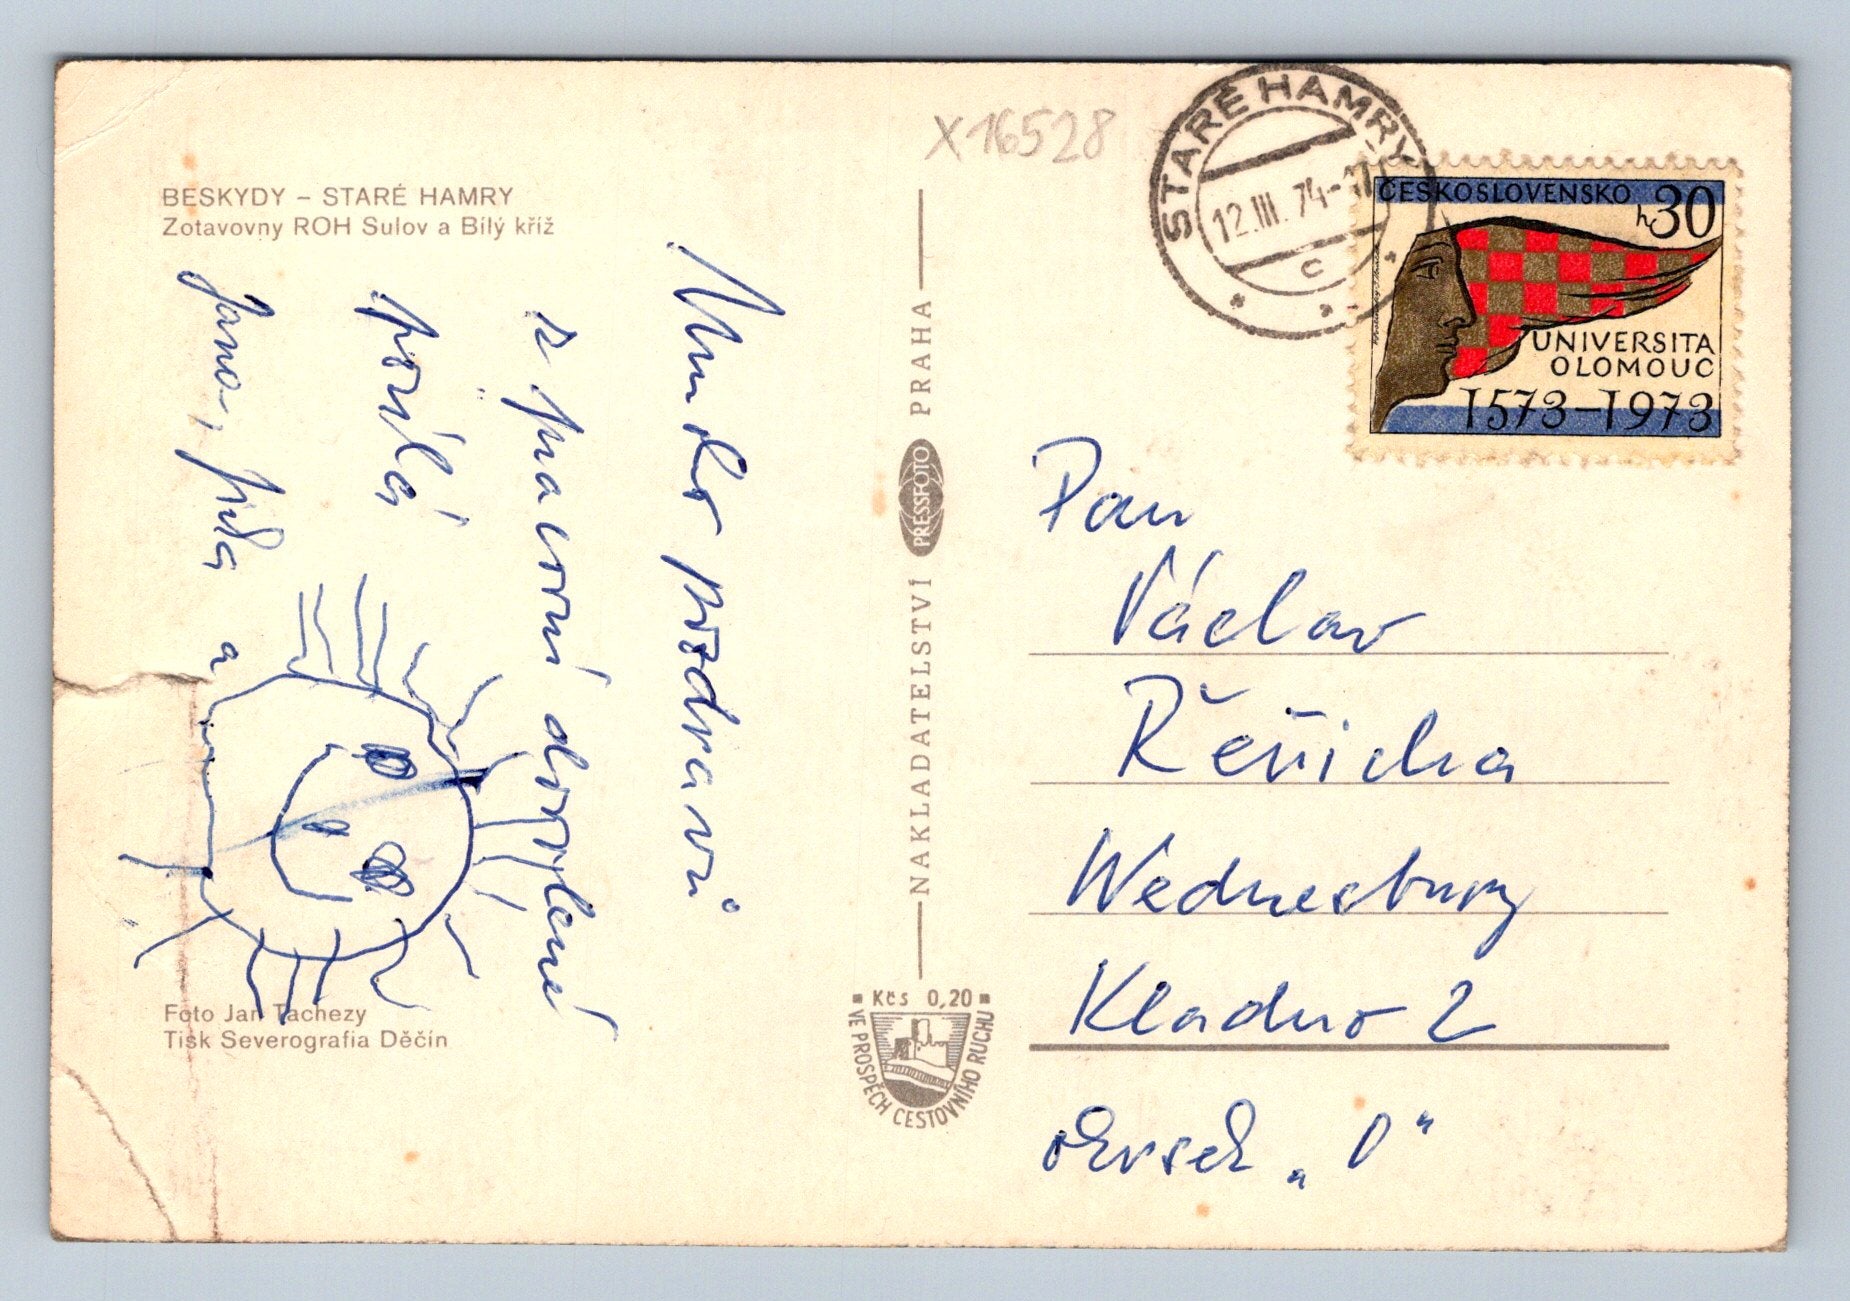 X 16528
BESKYDY – STARÉ HAMRY
Zotavovny ROH Sulov a Bílý kříž
Mnoho pozdravů
z pracovní dovolené
posílá
Jana, Jirka a
Foto Jan Tachezy
Tisk Severografia Děčín
NAKLADATELSTVÍ PRESSFOTO PRAHA
Kčs 0,20
VE PROSPĚCH CESTOVNÍHO RUCHU
STARÉ HAMRY
12.III.74-17
C
ČESKOSLOVENSKO
h30
UNIVERSITA
OLOMOUC
1573–1973
Pan
Václav
Wednesbury
Kladno 2
okrsek „0“